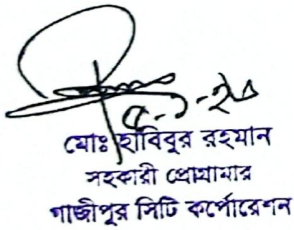 মোঃ হাবিবুর রহমান
সহকারী প্রোগ্রামার
গাজীপুর সিটি কর্পোরেশন